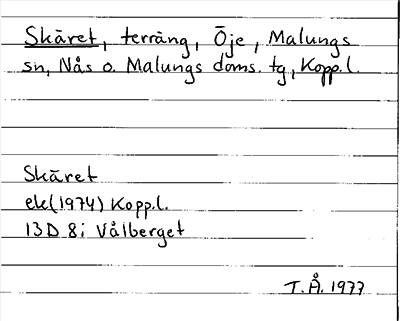 Skäret, terräng, Öje, Malungs
sn, Nås o. Malungs doms. tg, Kopp.l.
Skäret
ek(1974) Kopp.l.
13D 8i Vålberget
T.Å. 1977